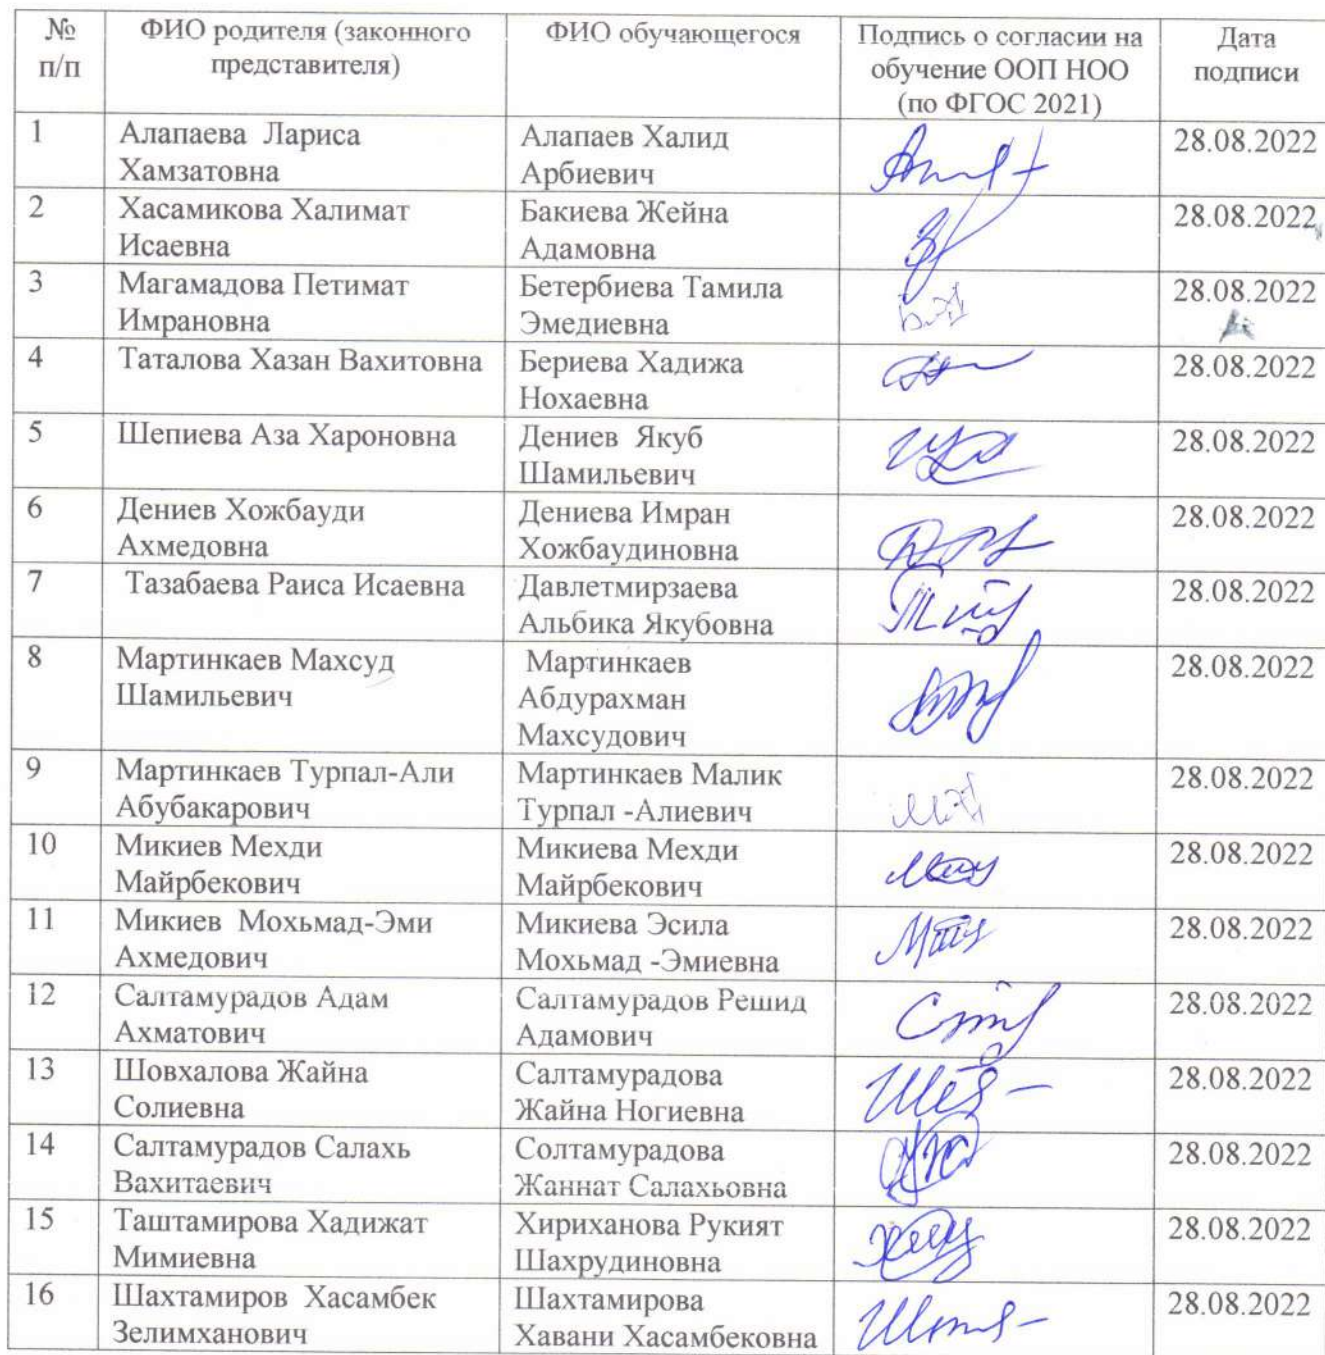 № п/п
ФИО родителя (законного представителя)
ФИО обучающегося
Подпись о согласии на обучение ООП НОО (по ФГОС 2021)
Дата подписи
1
Алапаева Лариса
Хамзатовна
Алапаев Халид
Арбиевич
28.08.2022
2
Хасамикова Халимат
Исаевна
Бакиева Жейна
Адамовна
28.08.2022
3
Магамадова Петимат
Имрановна
Бетербиева Тамила
Эмедиевна
28.08.2022
4
Таталова Хазан Вахитовна
Бериева Хадижа
Нохаевна
28.08.2022
5
Шепиева Аза Хароновна
Дениев Якуб
Шамильевич
28.08.2022
6
Дениев Хожбауди
Ахмедовна
Дениева Имран
Хожбаудиновна
28.08.2022
7
Тазабаева Раиса Исаевна
Давлетмирзаева
Альбика Якубовна
28.08.2022
8
Мартинкаев Махсуд
Шамильевич
Мартинкаев
Абдурахман
Махсудович
28.08.2022
9
Мартинкаев Турпал-Али
Абубакарович
Мартинкаев Малик
Турпал -Алиевич
28.08.2022
10
Микиев Мехди
Майрбекович
Микиева Мехди
Майрбекович
28.08.2022
11
Микиев Мохьмад-Эми
Ахмедович
Микиева Эсила
Мохьмад -Эмиевна
28.08.2022
12
Салтамурадов Адам
Ахматович
Салтамурадов Решид
Адамович
28.08.2022
13
Шовхалова Жайна
Солиевна
Салтамурадова
Жайна Ногиевна
28.08.2022
14
Салтамурадов Салахь
Вахитаевич
Солтамурадова
Жаннат Салахьовна
28.08.2022
15
Таштамирова Хадижат
Мимиевна
Хириханова Рукият
Шахрудиновна
28.08.2022
16
Шахтамиров Хасамбек
Зелимханович
Шахтамирова
Хавани Хасамбековна
28.08.2022